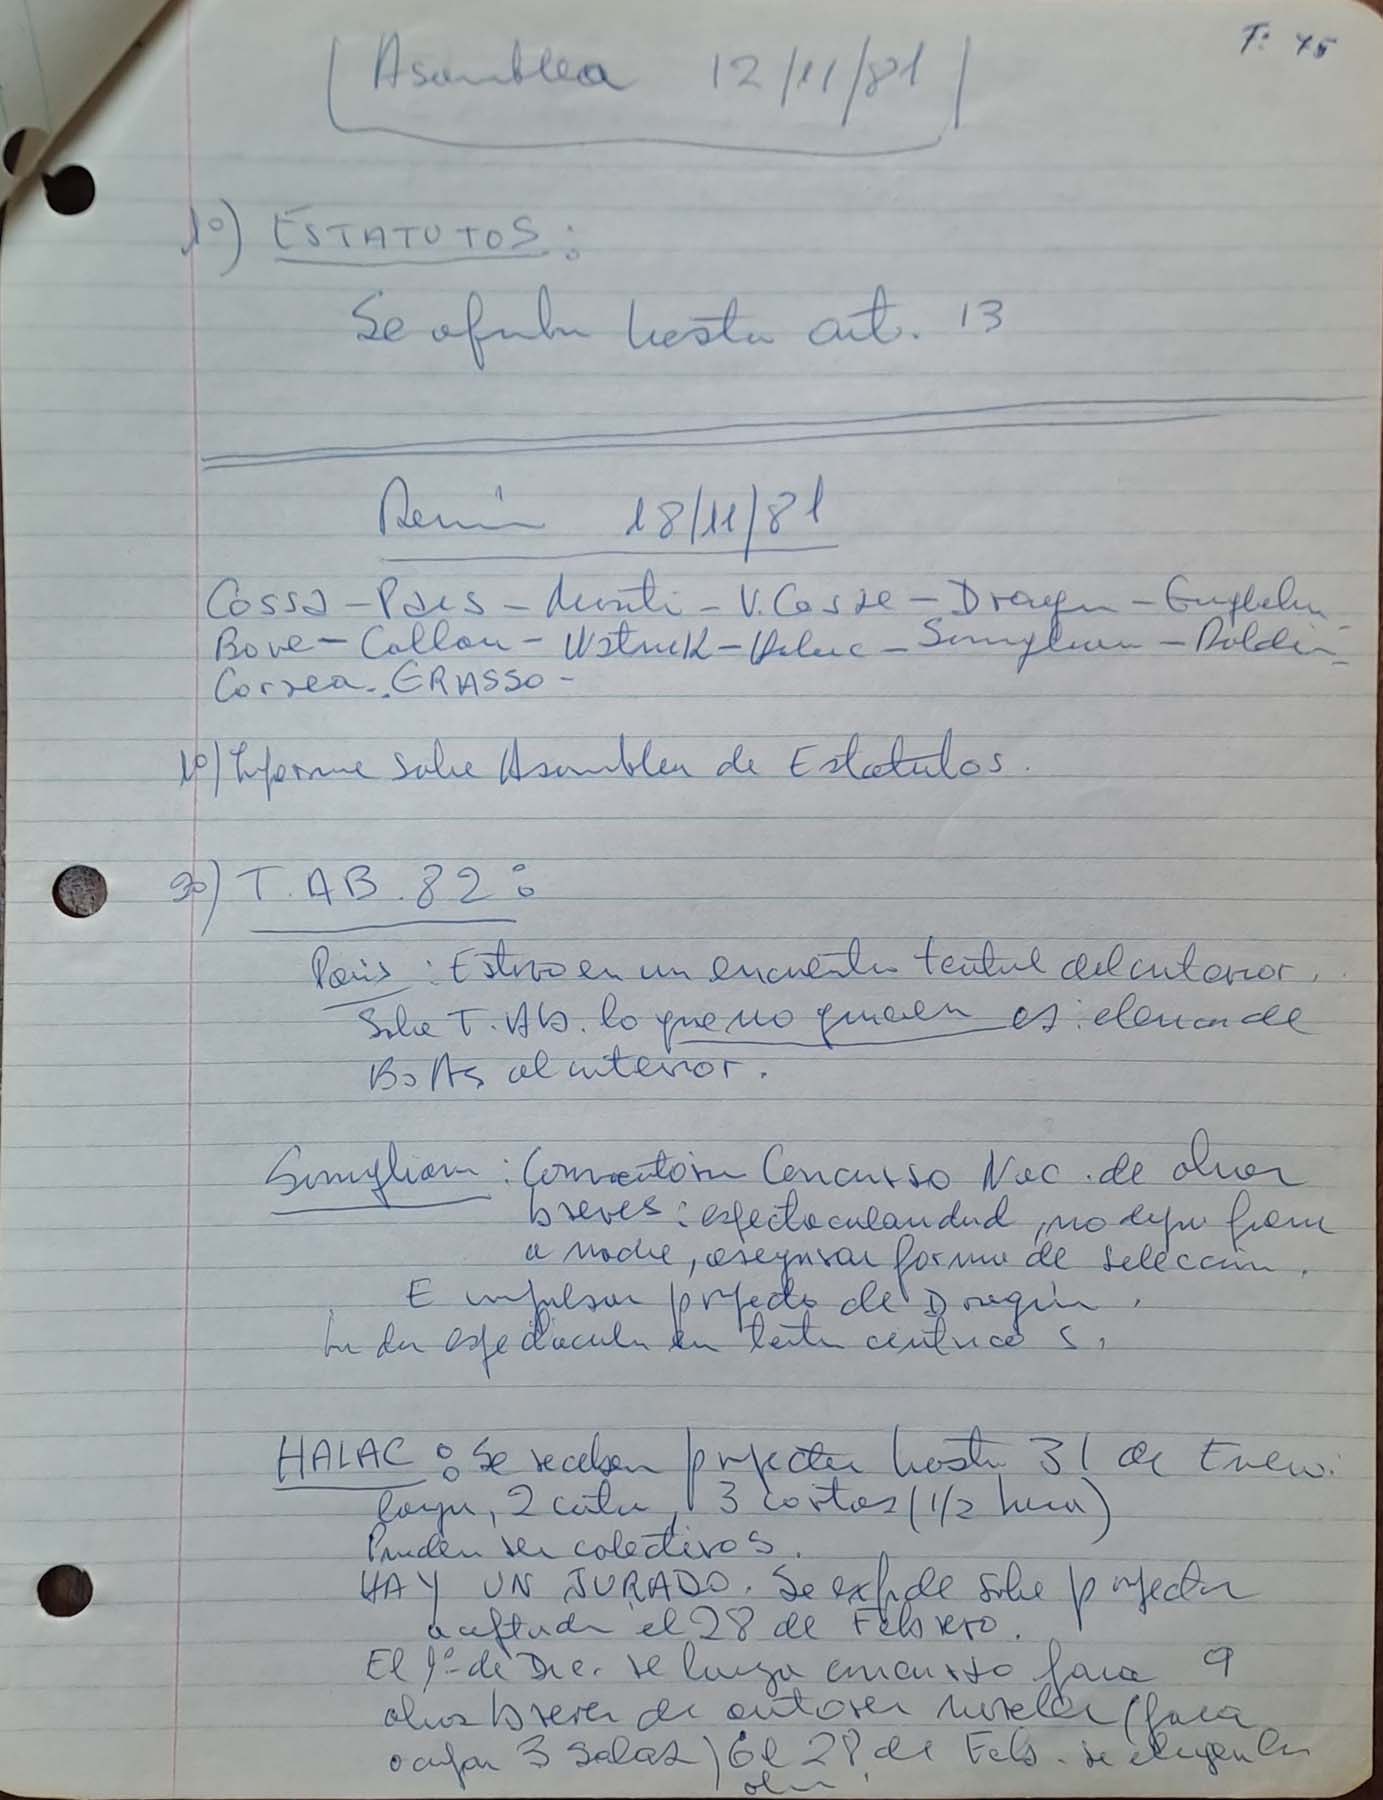 T: 75
Asamblea 12/11/81
1º) ESTATUTOS:
Se aprueba hasta art. 13
Reunión 18/11/81
Cossa - Pais - - V. Cosse - Dragun -
Bove - Collan - - Halac - Somigliana - Roldán -
Correa. GRASSO -
1º) Informe sobre Asamblea de Estatutos.
2º) T. AB. 82:
Pais: Estuvo en un encuentro teatral del interior.
Sobre T. Ab. lo que no quieren es: elencos de
Bs As al interior.
Somigliana: Concurso Nac. de obras
breves: espectacularidad, no dejar
a nadie, asegurar forma de selección.
E impulsar proyecto de Dragún.
espectáculo en teatro céntricos.
HALAC: Se reciben proyectos hasta 31 de Enero.
2 3 cortas (1/2 hora)
Pueden ser colectivos.
HAY UN JURADO. Se expide sobre proyectos
aceptados el 28 de Febrero.
El 1º de Dic. se lanza concurso para 9
obras breves de autores noveles (para
ocupar 3 salas) El 28 de Feb. se eligen las
obras.